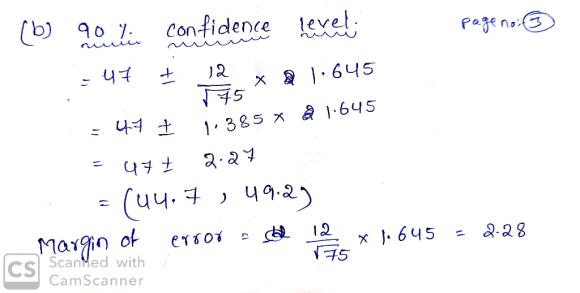 (b) 90 %. confidence level. page no: 3
= 47 ± 12/√75 × 1.645
= 47 ± 1.385 × 1.645
= 47 ± 2.27
= (44.7 , 49.2)
Margin of error = 12/√75 × 1.645 = 2.28
CS Scanned with
CamScanner